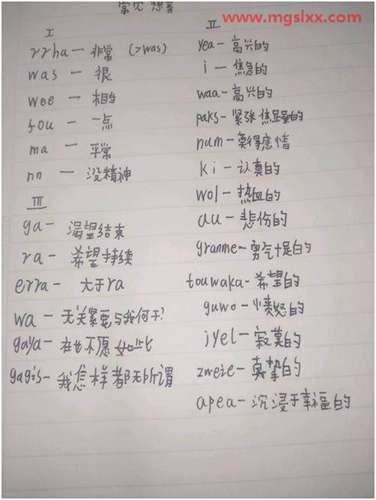 www.mgslxx.com
常见想音
I
rrha — 非常 (>was)
was — 很
wee — 相当
fou — 一点
ma — 平常
nn — 没精神
III
ga — 渴望结束
ra — 希望持续
erra — 大于ra
wa — 无关紧要与我何干?
gaya — 在也不愿如此
gagis — 我怎样都无所谓
II
yea — 高兴的
i — 焦急的
waa — 高兴的
paks — 紧张焦虑的
num — 莫得感情
ki — 认真的
wol — 热血的
au — 悲伤的
granme — 勇气十足的
touwaka — 希望的
guwo — 愤怒的
jyel — 寂寞的
zweie — 真挚的
apea — 沉浸于幸福的